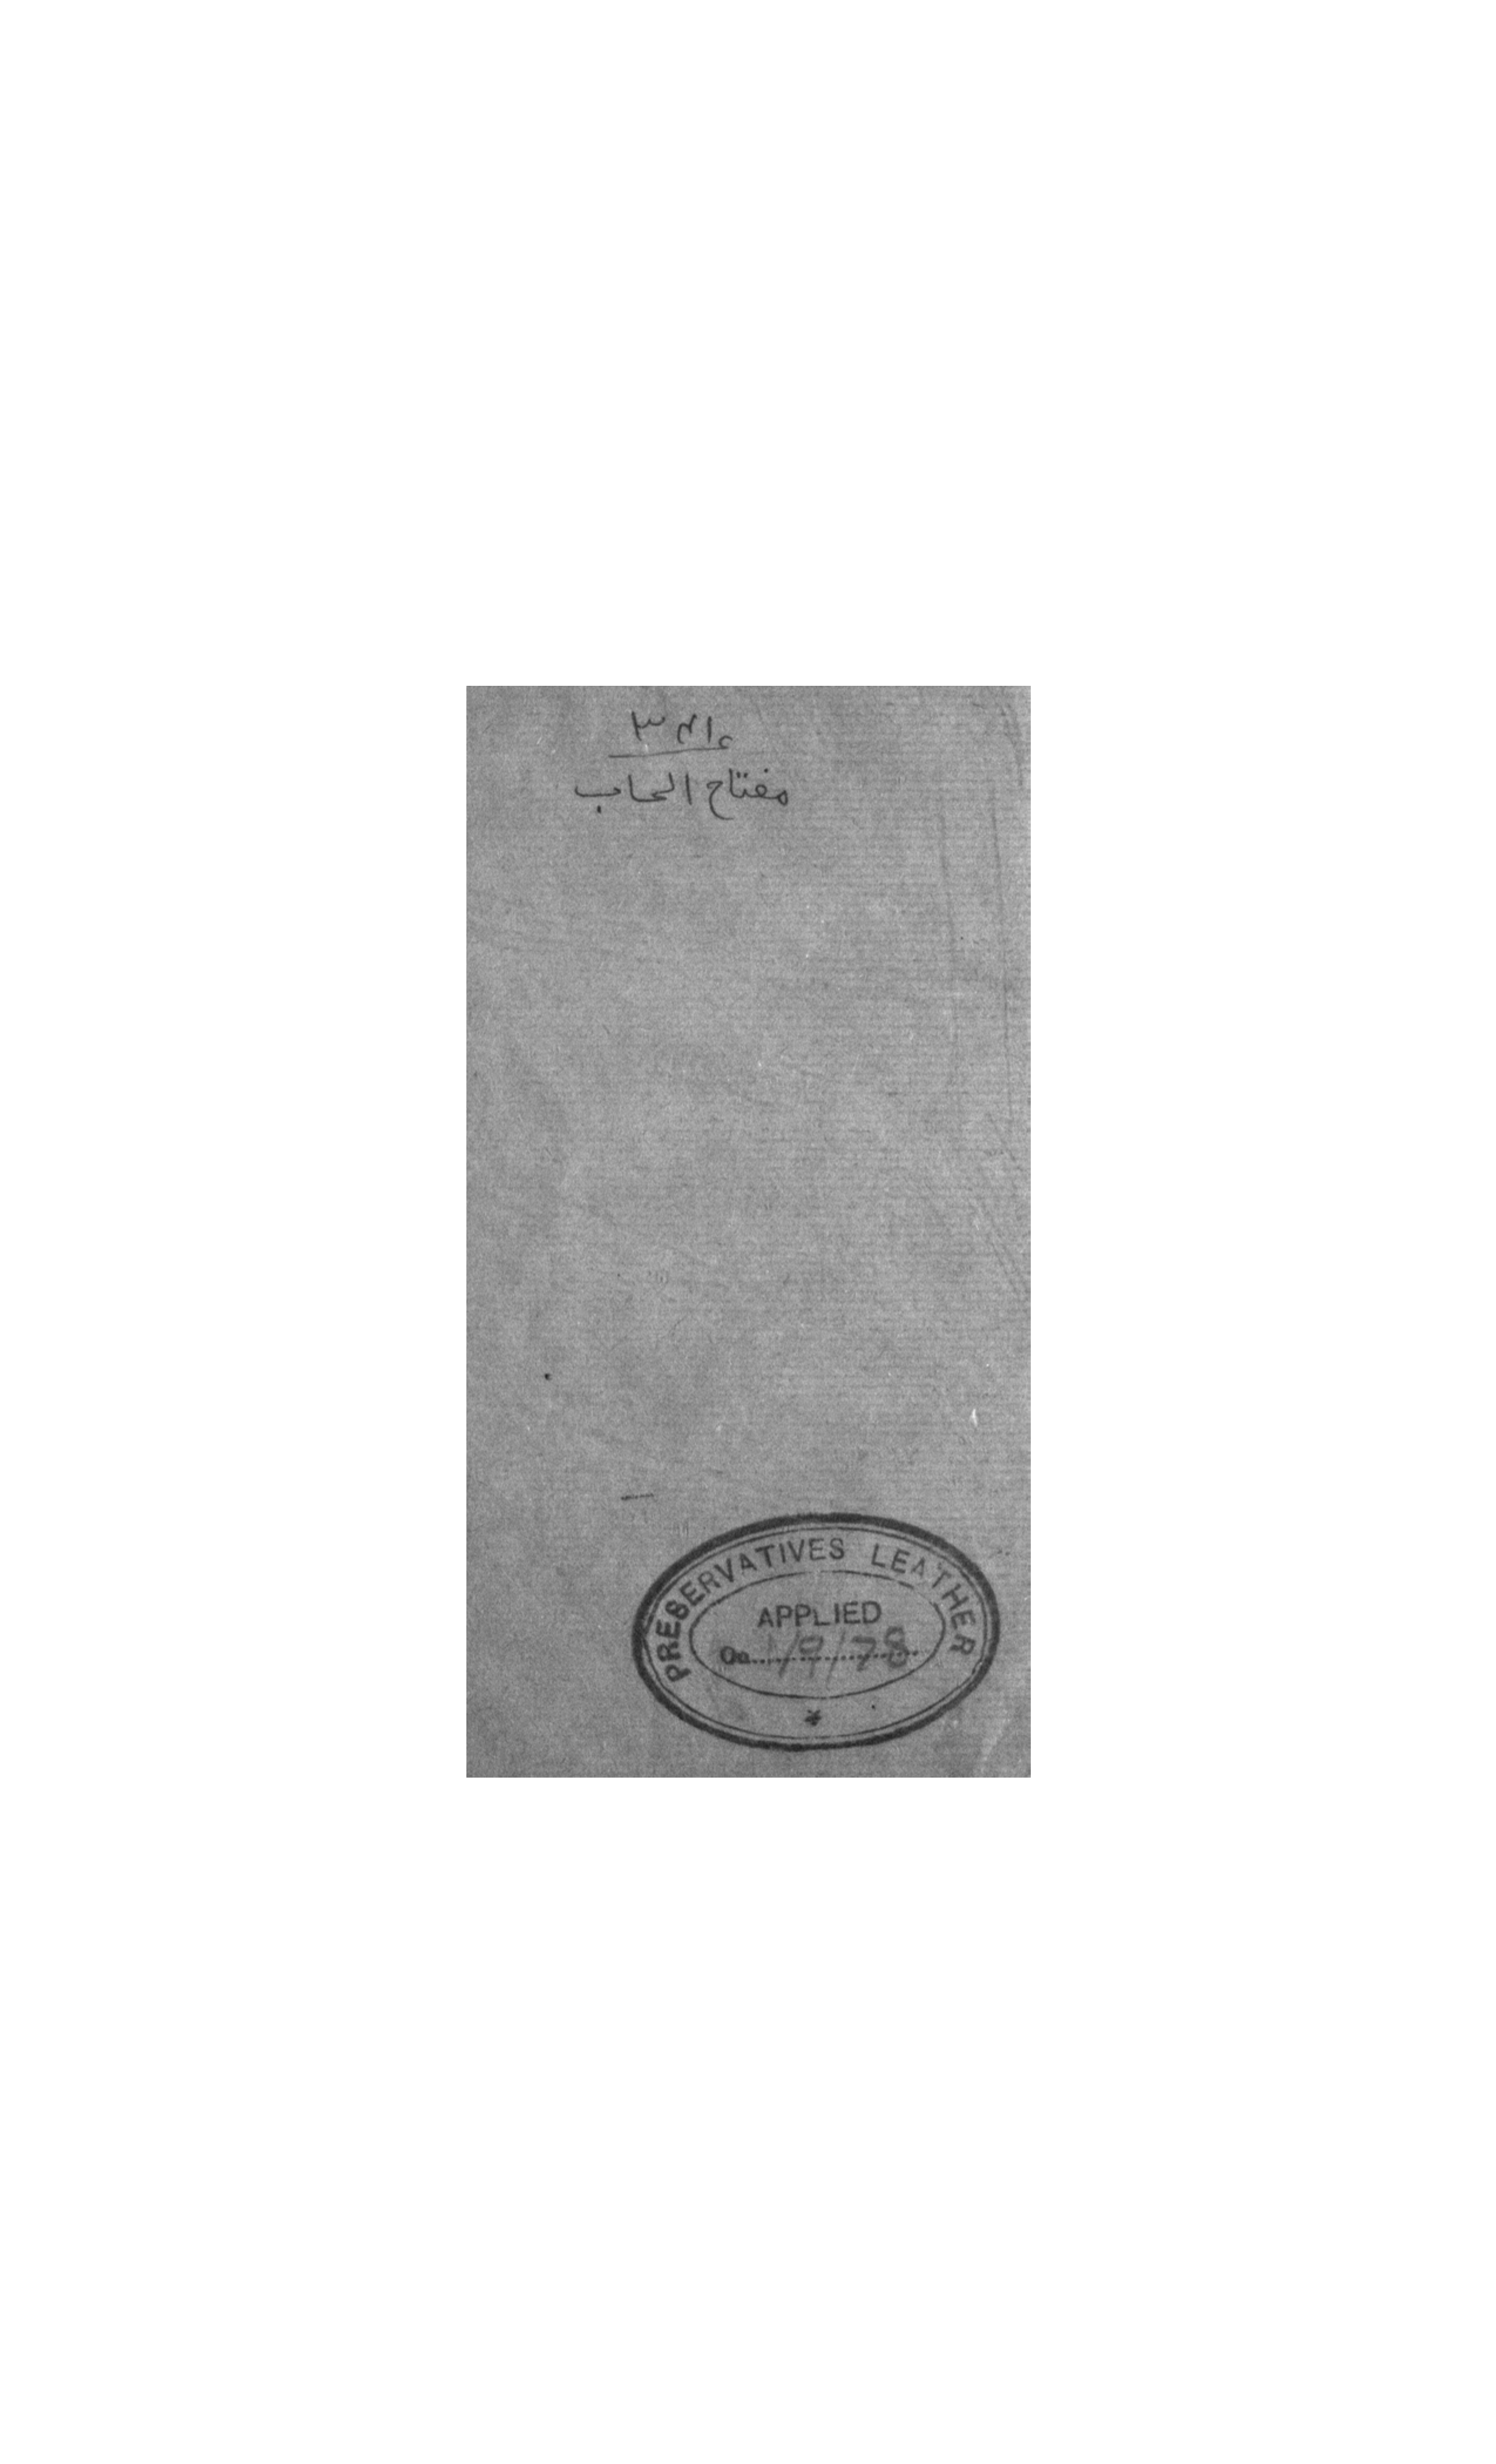 مفتاح الحساب
PRESERVATIVES LEATHER
APPLIED
On 1/9/78